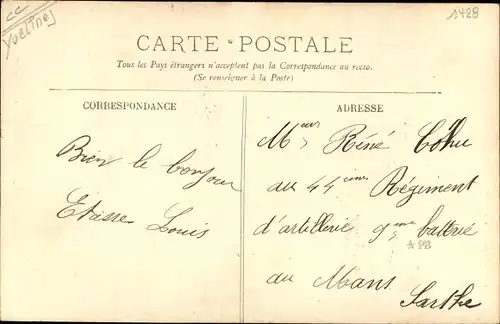 cc
Yvelines
1428
CARTE POSTALE
Tous les Pays étrangers n'acceptent pas la Correspondance au recto.
(Se renseigner à la Poste)
CORRESPONDANCE
Bien le bonjour
Louis
ADRESSE
Réné
au 44ième Régiment
d'artillerie 9eme batterie
au Mans
Sarthe